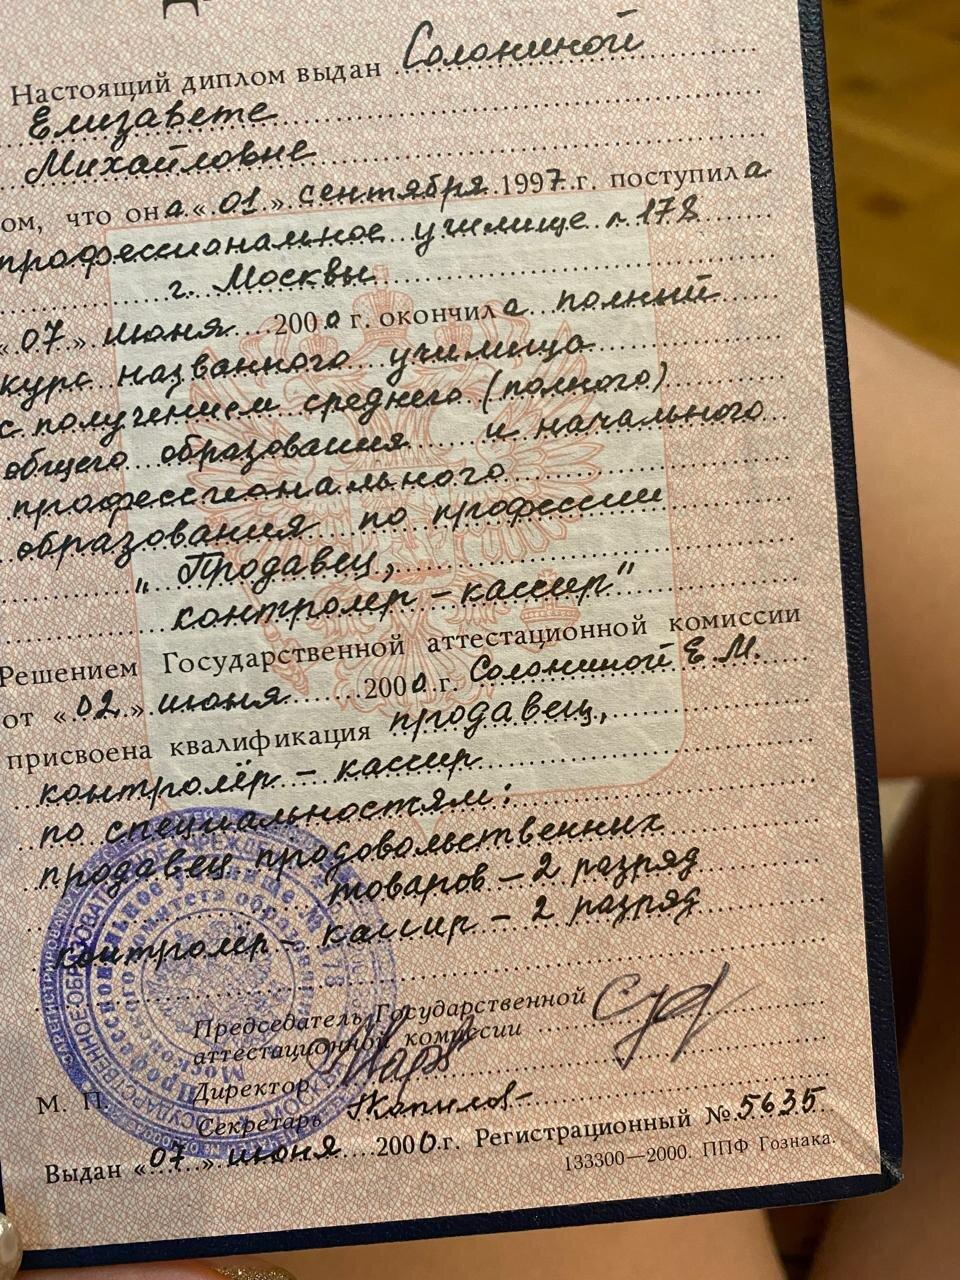 Настоящий диплом выдан Солониной
Елизавете
Михайловне
ом, что она «01» сентября 1997 г. поступила
профессиональное училище № 178
г. Москвы
«07» июня 2000 г. окончила полный
курс названного училища
с получением среднего (полного)
общего образования и начального
профессионального
образования по профессии
"Продавец,
контролер - кассир"
Решением Государственной аттестационной комиссии
от «02» июня 2000 г. Солониной Е. М.
присвоена квалификация продавец,
контролёр - кассир
по специальностям:
продавец продовольственных
товаров - 2 разряд
контролёр - кассир - 2 разряд
Председатель Государственной
аттестационной комиссии
Директор
М. П.
Секретарь
Выдан «07» июня 2000 г. Регистрационный № 5635
133300—2000. ППФ Гознака.